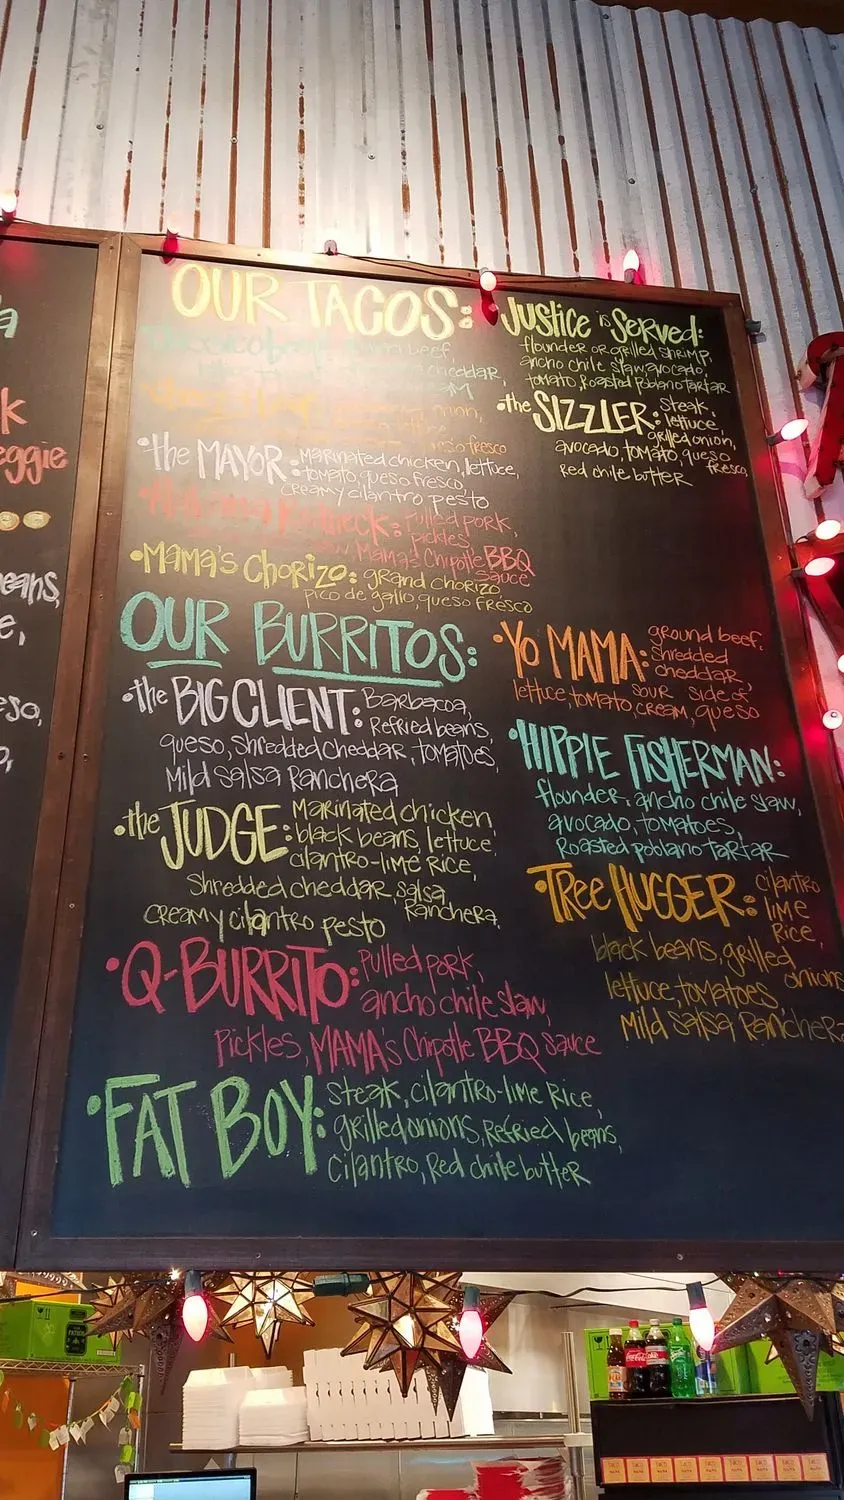 OUR TACOS:
beef,
cheddar,
onion,
queso fresco
•the MAYOR: Marinated chicken, lettuce,
tomato, queso fresco,
creamy cilantro pesto
Redneck: Pulled pork,
pickles
Mama's Chipotle BBQ
sauce
•Mama's Chorizo: grand chorizo,
pico de gallo, queso fresco
Justice is Served:
flounder or grilled shrimp,
ancho chile slaw, avocado,
tomato, Roasted Poblano tartar
•the SIZZLER: steak,
lettuce,
grilled onion,
avocado, tomato, queso
fresco,
red chile butter
OUR BURRITOS:
•the BIG CLIENT: Barbacoa,
Refried beans,
queso, shredded cheddar, tomatoes,
Mild salsa Ranchera
•the JUDGE: Marinated chicken,
black beans, lettuce
cilantro-lime rice,
Shredded cheddar, salsa
Ranchera,
creamy cilantro pesto
•Q-BURRITO: Pulled pork,
ancho chile slaw,
Pickles, MAMA's Chipotle BBQ sauce
•FAT BOY: steak, cilantro-lime Rice,
grilled onions, Refried beans,
cilantro, Red chile butter
•YO MAMA: ground beef,
shredded
cheddar,
lettuce, tomato, sour cream, side of queso
•HIPPIE FISHERMAN:
flounder, ancho chile slaw,
avocado, tomatoes,
Roasted poblano tartar
•Tree HUGGER: cilantro
lime
Rice,
black beans, grilled
onions
lettuce, tomatoes,
Mild salsa Ranchera
k
eggie
eans,
e,
eso,
o,
Coca-Cola
TACO
MAMA